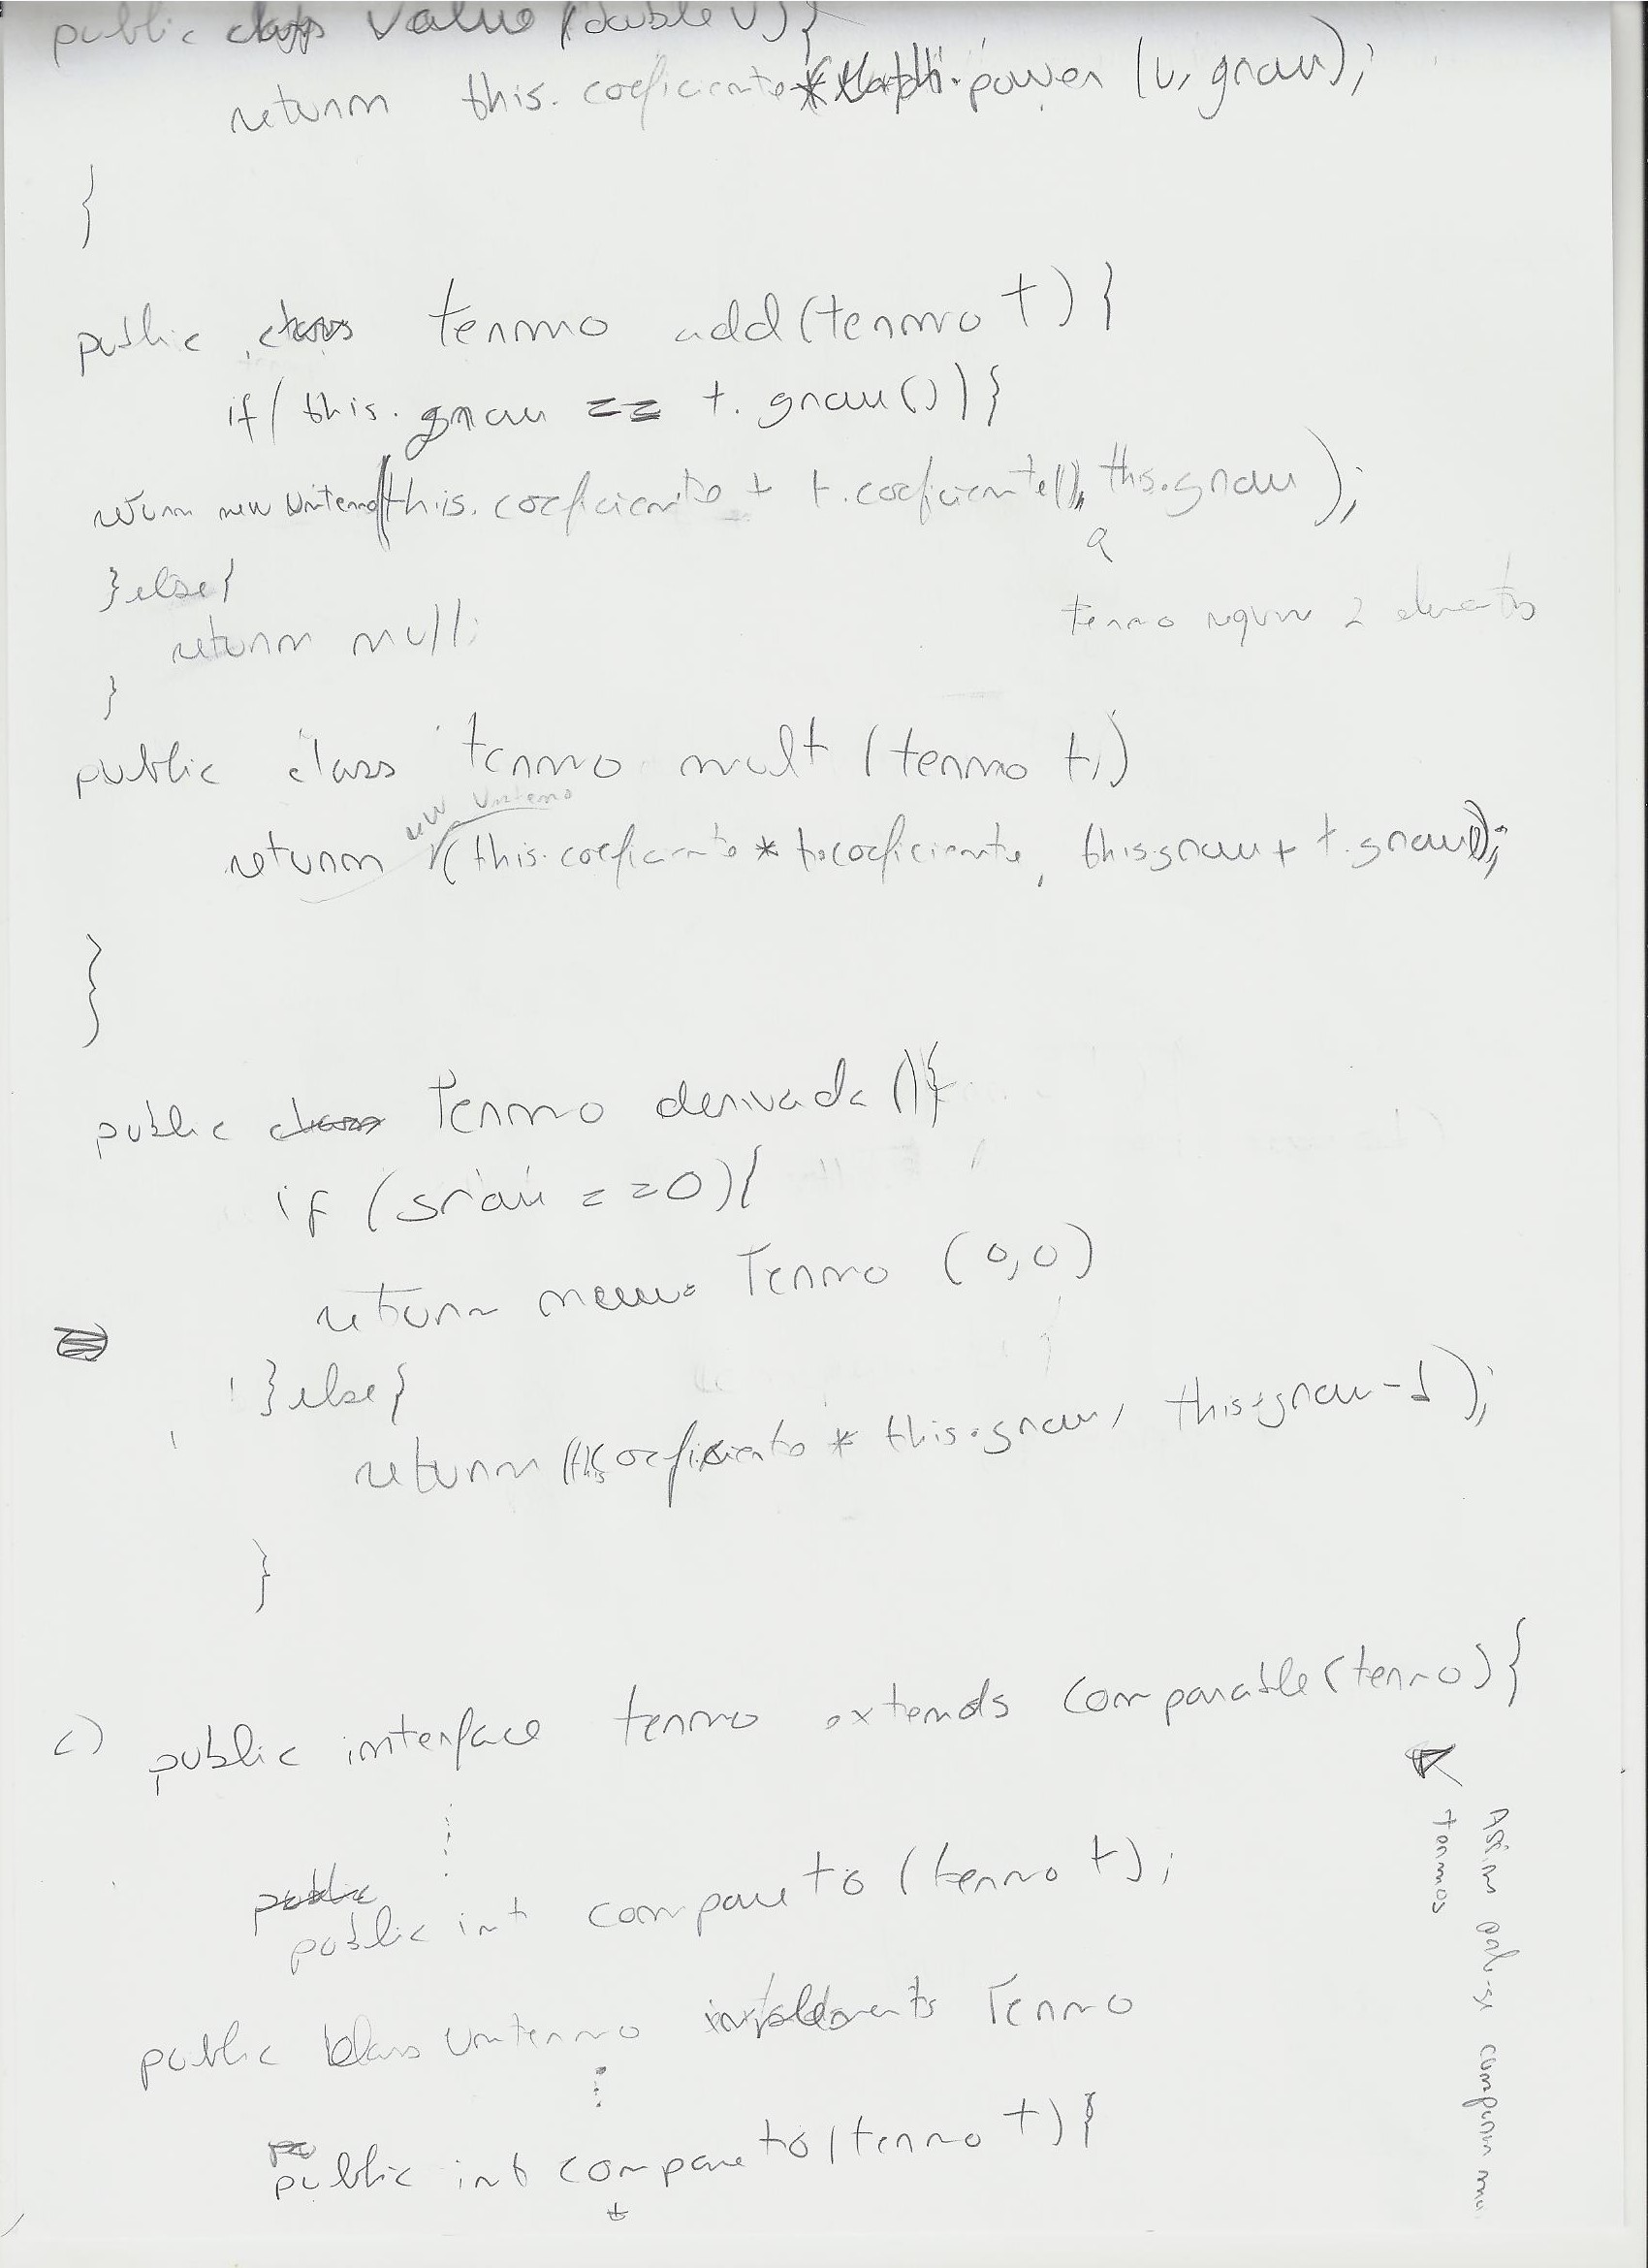 public class value (double v) {
return this.coeficiente * Math.power (v, grau);
}
public class termo add (termo t) {
if (this.grau == t.grau()) {
return new Umtermo (this.coeficiente + t.coeficiente(), this.grau);
termo requer 2 elementos
}else{
return null;
}
public class termo mult (termo t,)
new Umtermo
return (this.coeficiente * t.coeficiente, this.grau + t.grau());
}
public class Termo derivada () {
if (grau == 0) {
return new Termo (0,0)
}else{
return (this.coeficiente * this.grau, this.grau-1);
}
c) public interface termo extends comparable (termo) {
public
public int compare to (termo t);
Assim pode-se comparar
termos
public class umtermo implements Termo
public int compare to (termo t) {